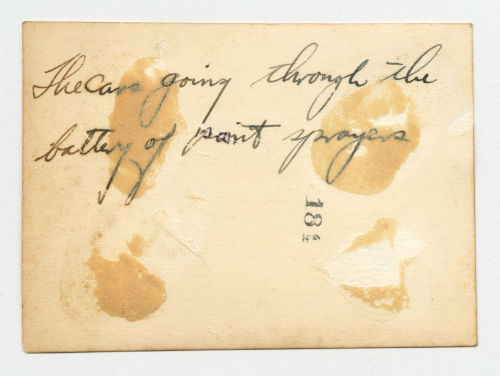 The cars going through the
battery of paint sprayers
18